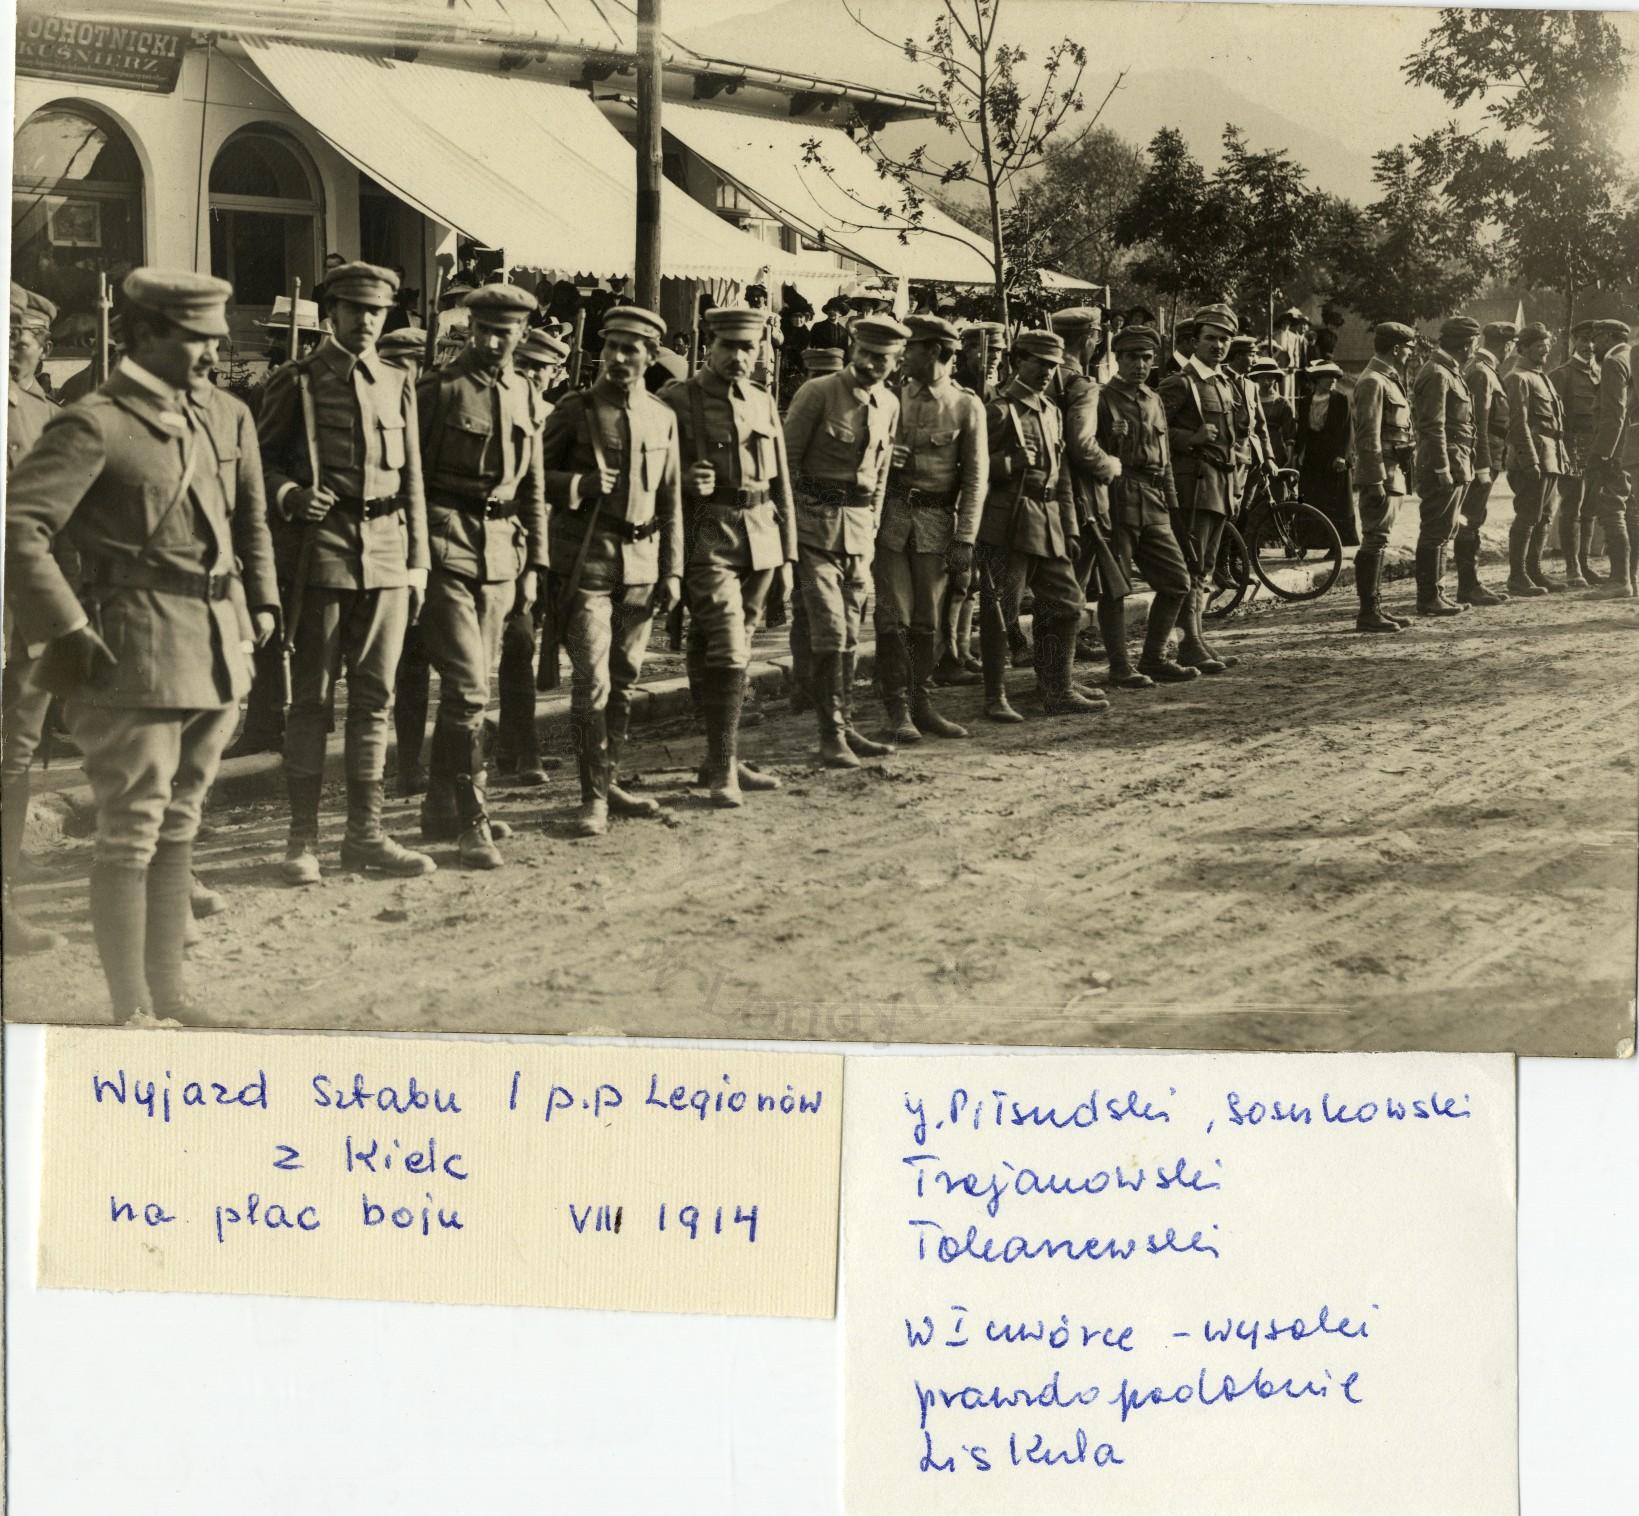 OCHOTNICKI
KUŚNIERZ
w Londynie
Wyjazd Sztabu I p.p Legionów
z Kielc
na plac boju VIII 1914
J. Piłsudski, Sosnkowski
Trojanowski
Tokarzewski
w I czwórce - wysoki
prawdopodobnie
Lis Kula